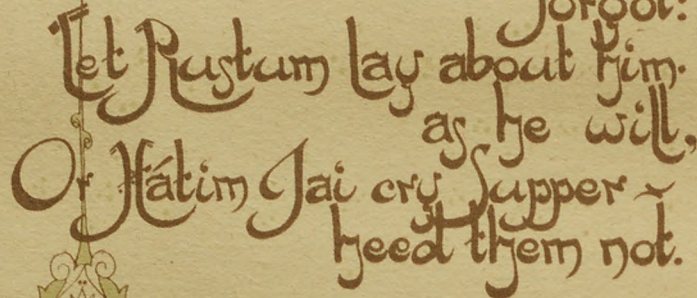 forgot:
Let Rustum lay about him
as he will,
Or Hátim Jai cry Supper ~
heed them not.